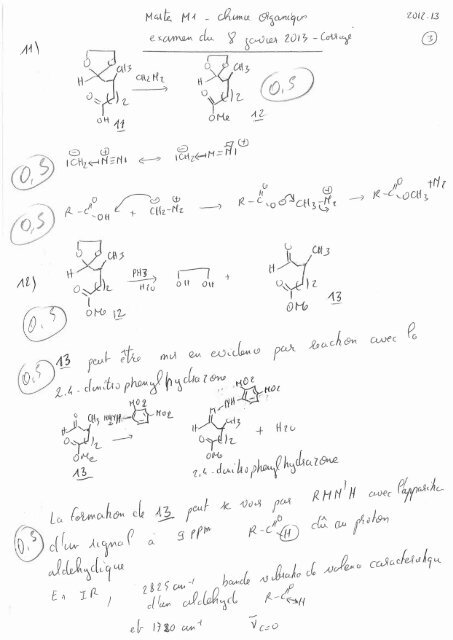 Master M1 - chimie organique
2012-13
examen du 8 janvier 2013 - Corrigé
3
11)
CH3
H
CH2N2
CH3
H
0,5
O
OH
11
O
OMe
12
0,5
CH2 N≡N ↔ CH2 N=N
0,5
R-C OH + CH2-N2 → R-C O CH3-N2 → R-C OCH3 + N2
12)
CH3
H
PH3
H2O
OH OH
+
H
CH3
O
OMe
12
O
OMe
13
0,5
0,5
13 peut être mis en évidence par réaction avec la
2.4-dinitrophenylhydrazone
NO2
NO2
CH3
H
H2N NH
OMe
13
N-NH
NO2
NO2
H
CH3
OMe
+ H2O
2.4-dinitrophenylhydrazone
La formation de 13 peut se voir par RMN 1H avec l'apparition
0,5
d'un signal à 9 ppm R-C H dû au proton
aldéhydique
En IR, 2825 cm-1 bande vibration de valence caractéristique
d'un aldehyde R-C H
et 1730 cm-1 ν̄ C=O